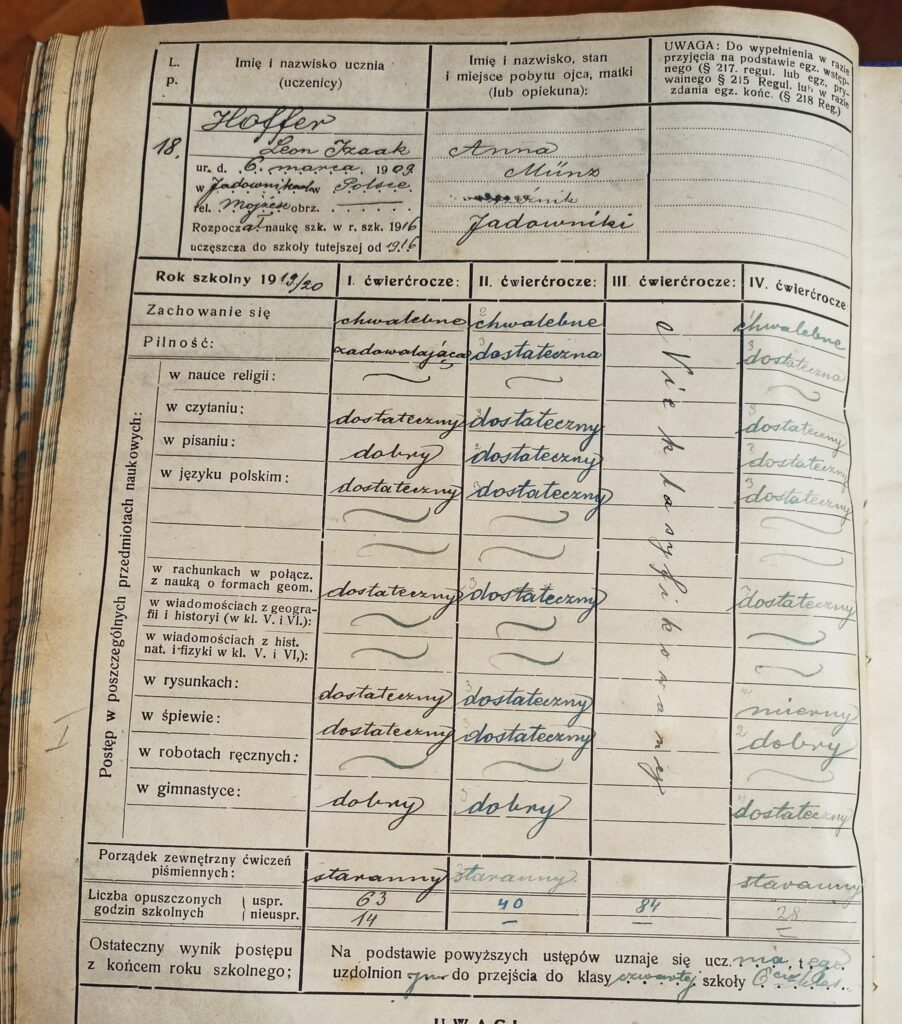 L. p.
Imię i nazwisko ucznia
(uczenicy)
Imię i nazwisko, stan
i miejsce pobytu ojca, matki
(lub opiekuna):
UWAGA: Do wypełnienia w razie
przyjęcia na podstawie egz. wstęp-
nego (§ 217. regul. lub egz. pry-
wainego § 215 Regul. lub w razie
zdania egz. końc. (§ 218 Reg.)
18.
Hoffer
Leon Izaak
ur. d. 6. marca 1909
w Jadownikach Polsce
rel. Mojżesz obrz.
Rozpoczął naukę szk. w r. szk. 1916
uczęszcza do szkoły tutejszej od 1916
Anna
Münz
Jadowniki
Rok szkolny 1919/20 I. ćwierćrocze: II. ćwierćrocze: III. ćwierćrocze: IV. ćwierćrocze
Zachowanie się chwalebne 2 chwalebne chwalebne
Pilność: zadowalająca 3 dostateczna 3 dostateczna
Nieklasyfikowany
Postęp w poszczególnych przedmiotach naukowych:
w nauce religii:
w czytaniu: dostateczny 3 dostateczny 3 dostateczny
w pisaniu: dobry dostateczny dostateczny
w języku polskim: dostateczny 3 dostateczny 3 dostateczny
w rachunkach w połącz.
z nauką o formach geom. dostateczny 3 dostateczny dostateczny
w wiadomościach z geogra-
fii i historyi (w kl. V. i VI.):
w wiadomościach z hist.
nat. i fizyki w kl. V. i VI,):
w rysunkach: dostateczny 3 dostateczny 4 mierny
w śpiewie: dostateczny 3 dostateczny 2 dobry
w robotach ręcznych:
w gimnastyce: dobry dobry dostateczny
Porządek zewnętrzny ćwiczeń
piśmiennych: staranny staranny staranny
Liczba opuszczonych uspr. 63 40 84 28
godzin szkolnych nieuspr. 14 — — —
Ostateczny wynik postępu
z końcem roku szkolnego;
Na podstawie powyższych ustępów uznaje się ucz. nia tego
uzdolnion ym do przejścia do klasy czwartej szkoły 6 cio klas.
UWAGI